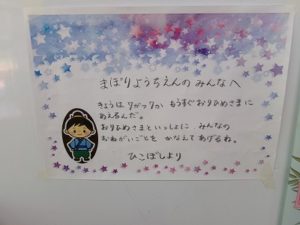 まぼりようちえんのみんなへ
きょうは 7がつ7か もうすぐおりひめさまに
あえるんだ。
おりひめさまといっしょに みんなの
おねがいごとを かなえてあげるね。
ひこぼしより